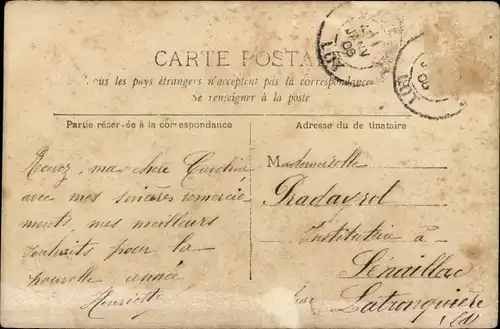 CARTE POSTALE
Tous les pays étrangers n'acceptent pas la correspondance
Se renseigner à la poste
Partie réservée à la correspondance
Adresse du destinataire
Recevez, ma chère Caroline
avec mes sincères remercie
ments, mes meilleurs
souhaits pour la
nouvelle année
Henriette
Mademoiselle
Pradayrol
Institutrice à
Sénaillac
par Latronquière
(Lot)
JANV
08
LOT
08
LOT